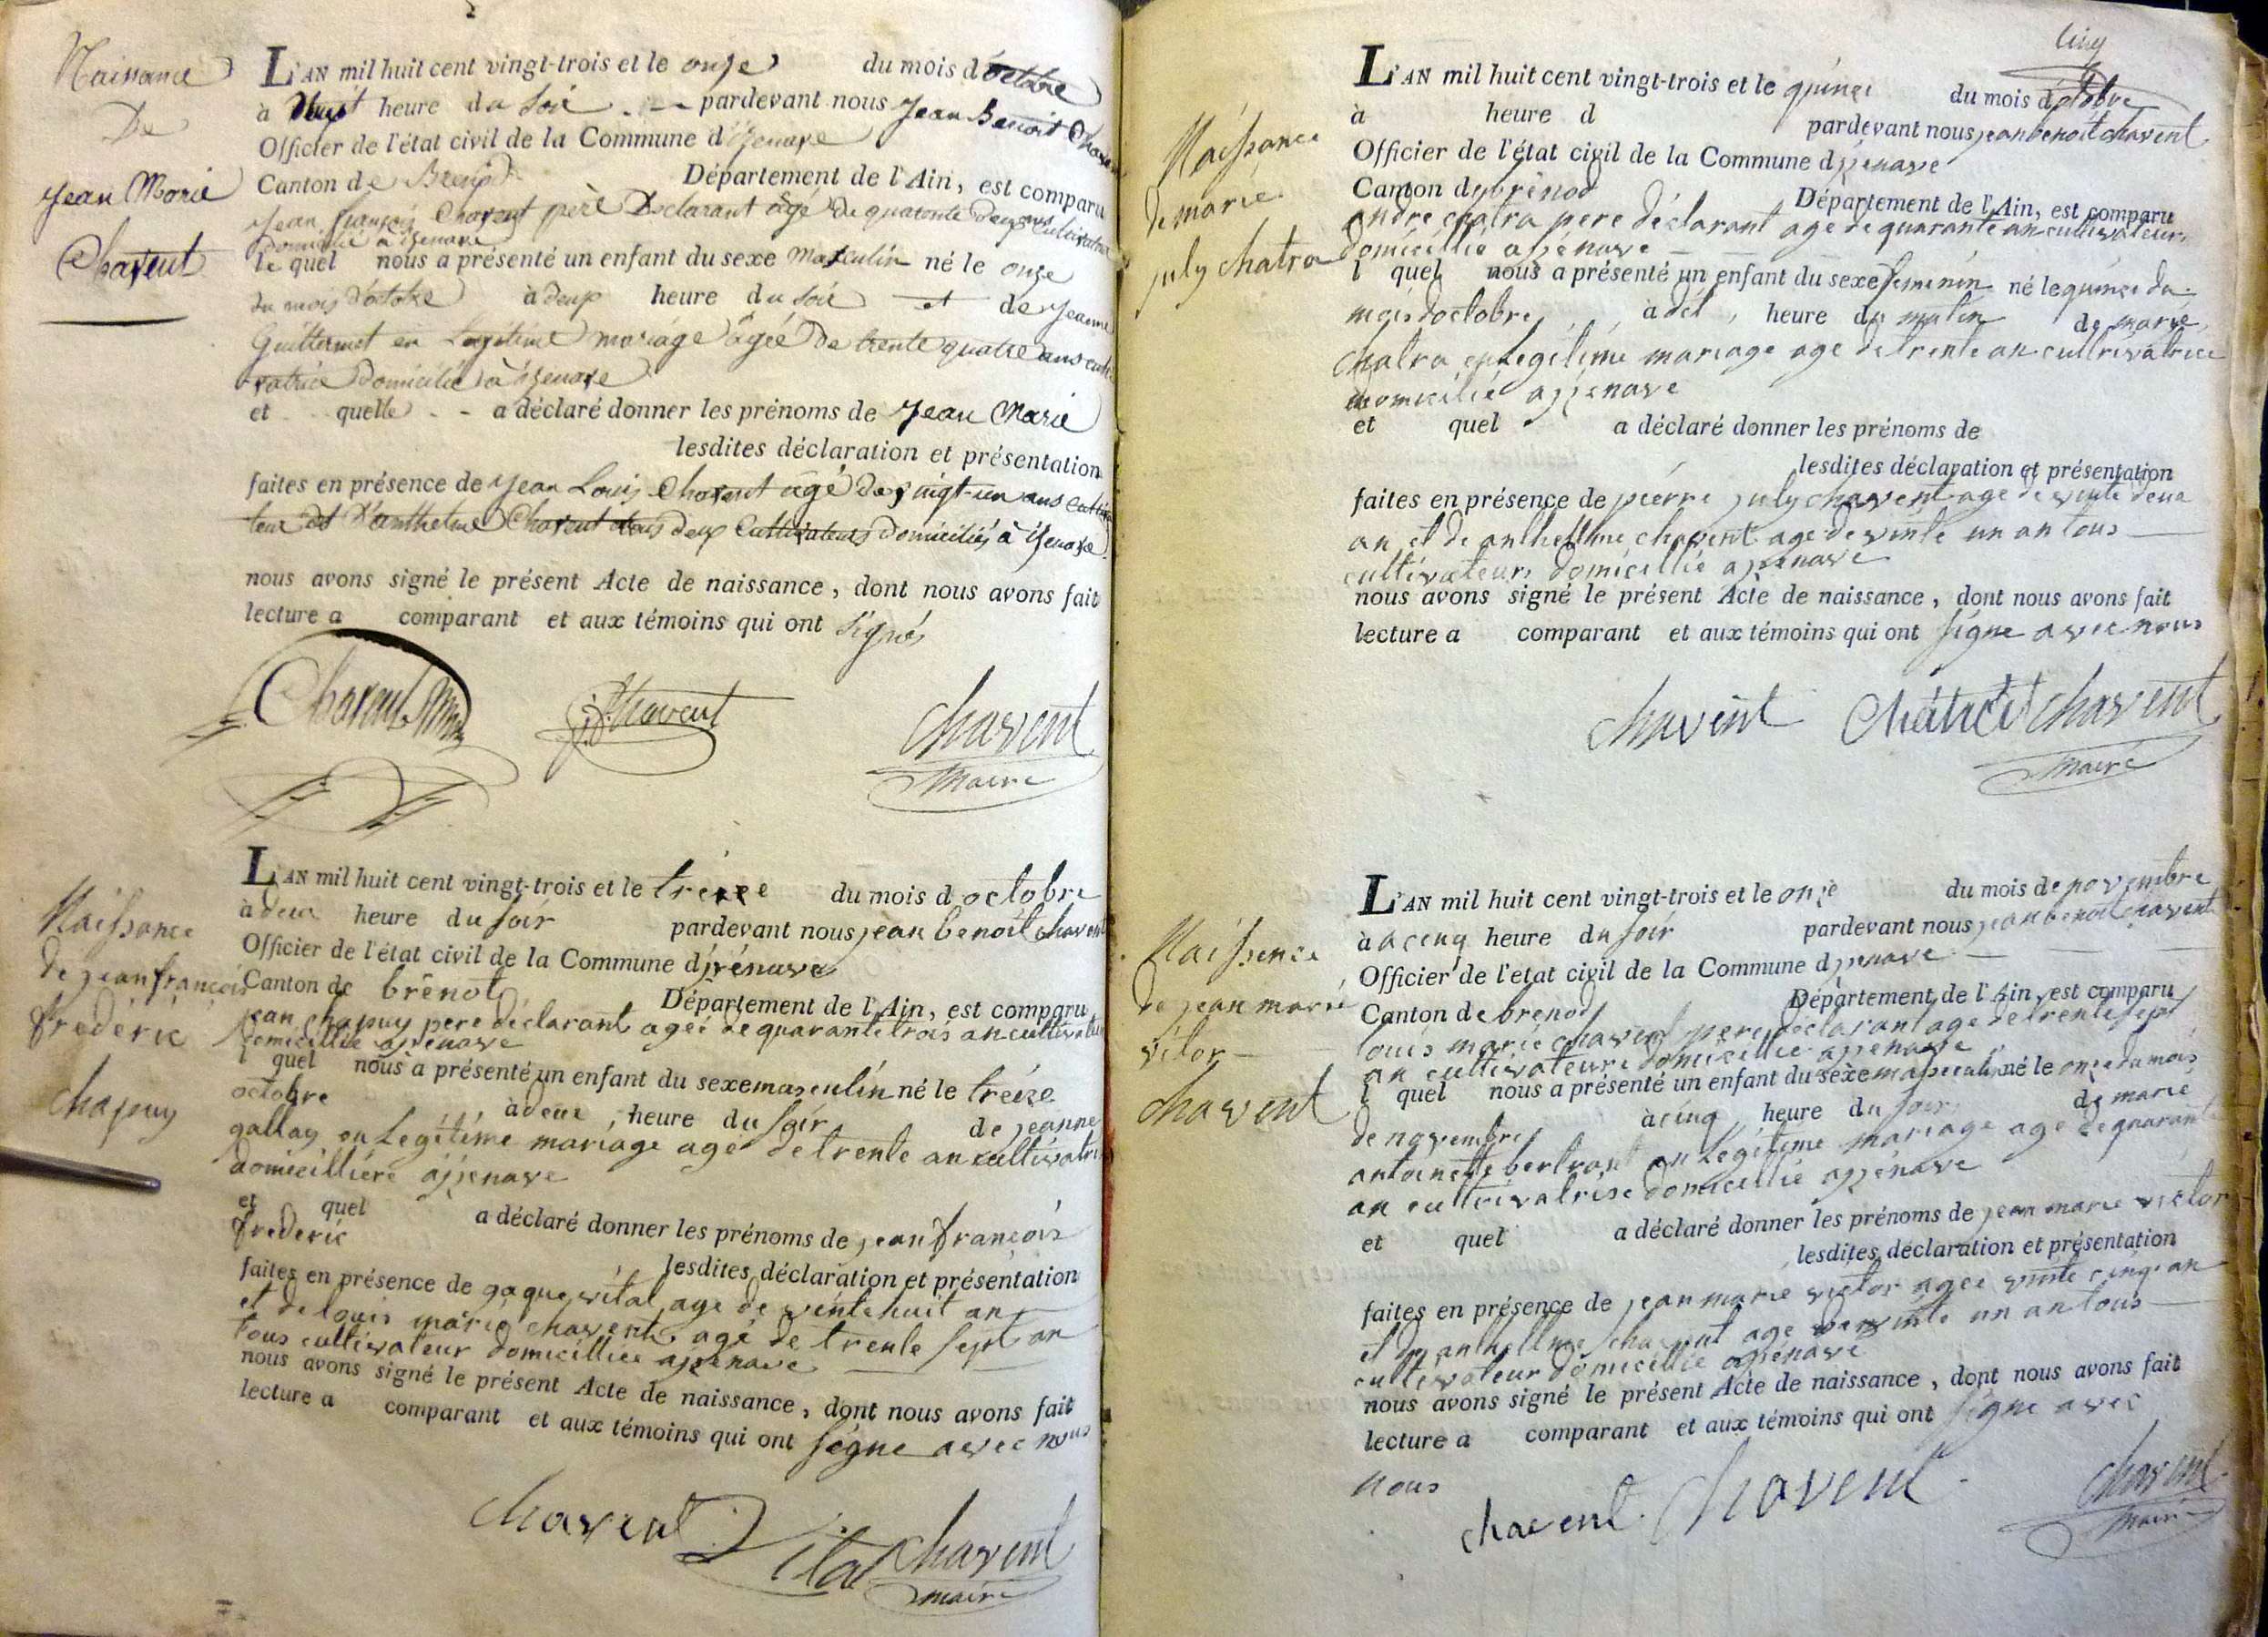 Naissance
De
Jean Marie
Chavent
L'AN mil huit cent vingt-trois et le onze du mois d'octobre
à huit heure du soir pardevant nous Jean Benoit Chavent
Officier de l'état civil de la Commune d'izenave
Canton de Brenod Département de l'Ain, est comparu
Jean françois Chavent père Declarant âgé de quarante deux ans cultivateur
Domicilié à izenave
le quel nous a présenté un enfant du sexe masculin né le onze
du mois d'octobre à deux heure du soir et de Jeanne
Guillermet en Legitime mariage âgée de trente quatre ans culti
vatrice Domicilié à izenave
et quelle a déclaré donner les prénoms de Jean Marie
lesdites déclaration et présentation
faites en présence de Jean Louis Chavent âgé de vingt-un ans cultiva
teur et D'anthelme Chavent tous deux Cultivateurs Domiciliés à izenave
nous avons signé le présent Acte de naissance, dont nous avons fait
lecture a comparant et aux témoins qui ont signés
Chavent
Chavent
chavent
maire
Naissance
de jean françois
frederic
chapuy
L'AN mil huit cent vingt-trois et le treize du mois d octobre
à deux heure du soir pardevant nous jean benoit chavent
Officier de l'état civil de la Commune d izénave
Canton de brénot Département de l'Ain, est comparu
jean chapuy pere déclarant ageé de quarante trois an cultivateur
domicillié a izenave
l quel nous a présenté un enfant du sexe masculin né le treize
octobre à deux heure du soir de jeanne
gallay en Legitéme mariage agé de trente an cultivatri
domicilliére a izenave
et quel a déclaré donner les prénoms de jean françois
frederic
lesdites déclaration et présentation
faites en présence de gaque vital age de vente huit an
et de louis marie chavent agé de trente sept an
tous cultivateur domicilliee a izenave
nous avons signé le présent Acte de naissance, dont nous avons fait
lecture a comparant et aux témoins qui ont signe avec nous
chavent Vital chavent
maire
cinq
Naissance
de marie
july chatra
L'AN mil huit cent vingt-trois et le quinze du mois d octobre
à heure d pardevant nous jean benoit chavent
Officier de l'état civil de la Commune d izenave
Canton de brénod Département de l'Ain, est comparu
andre chatra pere déclarant age de quarante an cultivateur
domicillié a izenave
l quel nous a présenté un enfant du sexe feminin né le quinze du
mois doctobre à dél heure du matin de marie
chatra en Legitime mariage age de trente an cultrivatrice
domicilié a izenave
et quel a déclaré donner les prénoms de
lesdites déclaration et présentation
faites en présence de pierre july chavent age de vinte deux
an et de anthellme chavent age de vinte un an tous
cultivateurs domicillié a izenave
nous avons signé le présent Acte de naissance, dont nous avons fait
lecture a comparant et aux témoins qui ont signe avec nous
chavent chavent
maire
Naissence
de jean marie
vitor
chavent
L'AN mil huit cent vingt-trois et le onze du mois de novembre
à a cinq heure du soir pardevant nous jean benoit chavent
Officier de l'état civil de la Commune d izenave
Canton de brénod Département de l'Ain, est comparu
louis marie chavent pere declarant age de trente sept
an cultivateure domicillie a izenave
l quel nous a présenté un enfant du sexe masculin né le onze du mois
de novembre à cinq heure du soir de marie
antoinette bertrant en Legitime mariage age de quarante
an cultrivatrise domicillié a izénave
et quel a déclaré donner les prénoms de jean marie victor
lesdites déclaration et présentation
faites en présence de jean marie victor agee vinte cinq an
et de anthellme chavent age de vinte un an tous
cultivateur domicillié a izenave
nous avons signé le présent Acte de naissance, dont nous avons fait
lecture a comparant et aux témoins qui ont signe avec
nous
chavent chavent chavent
maire